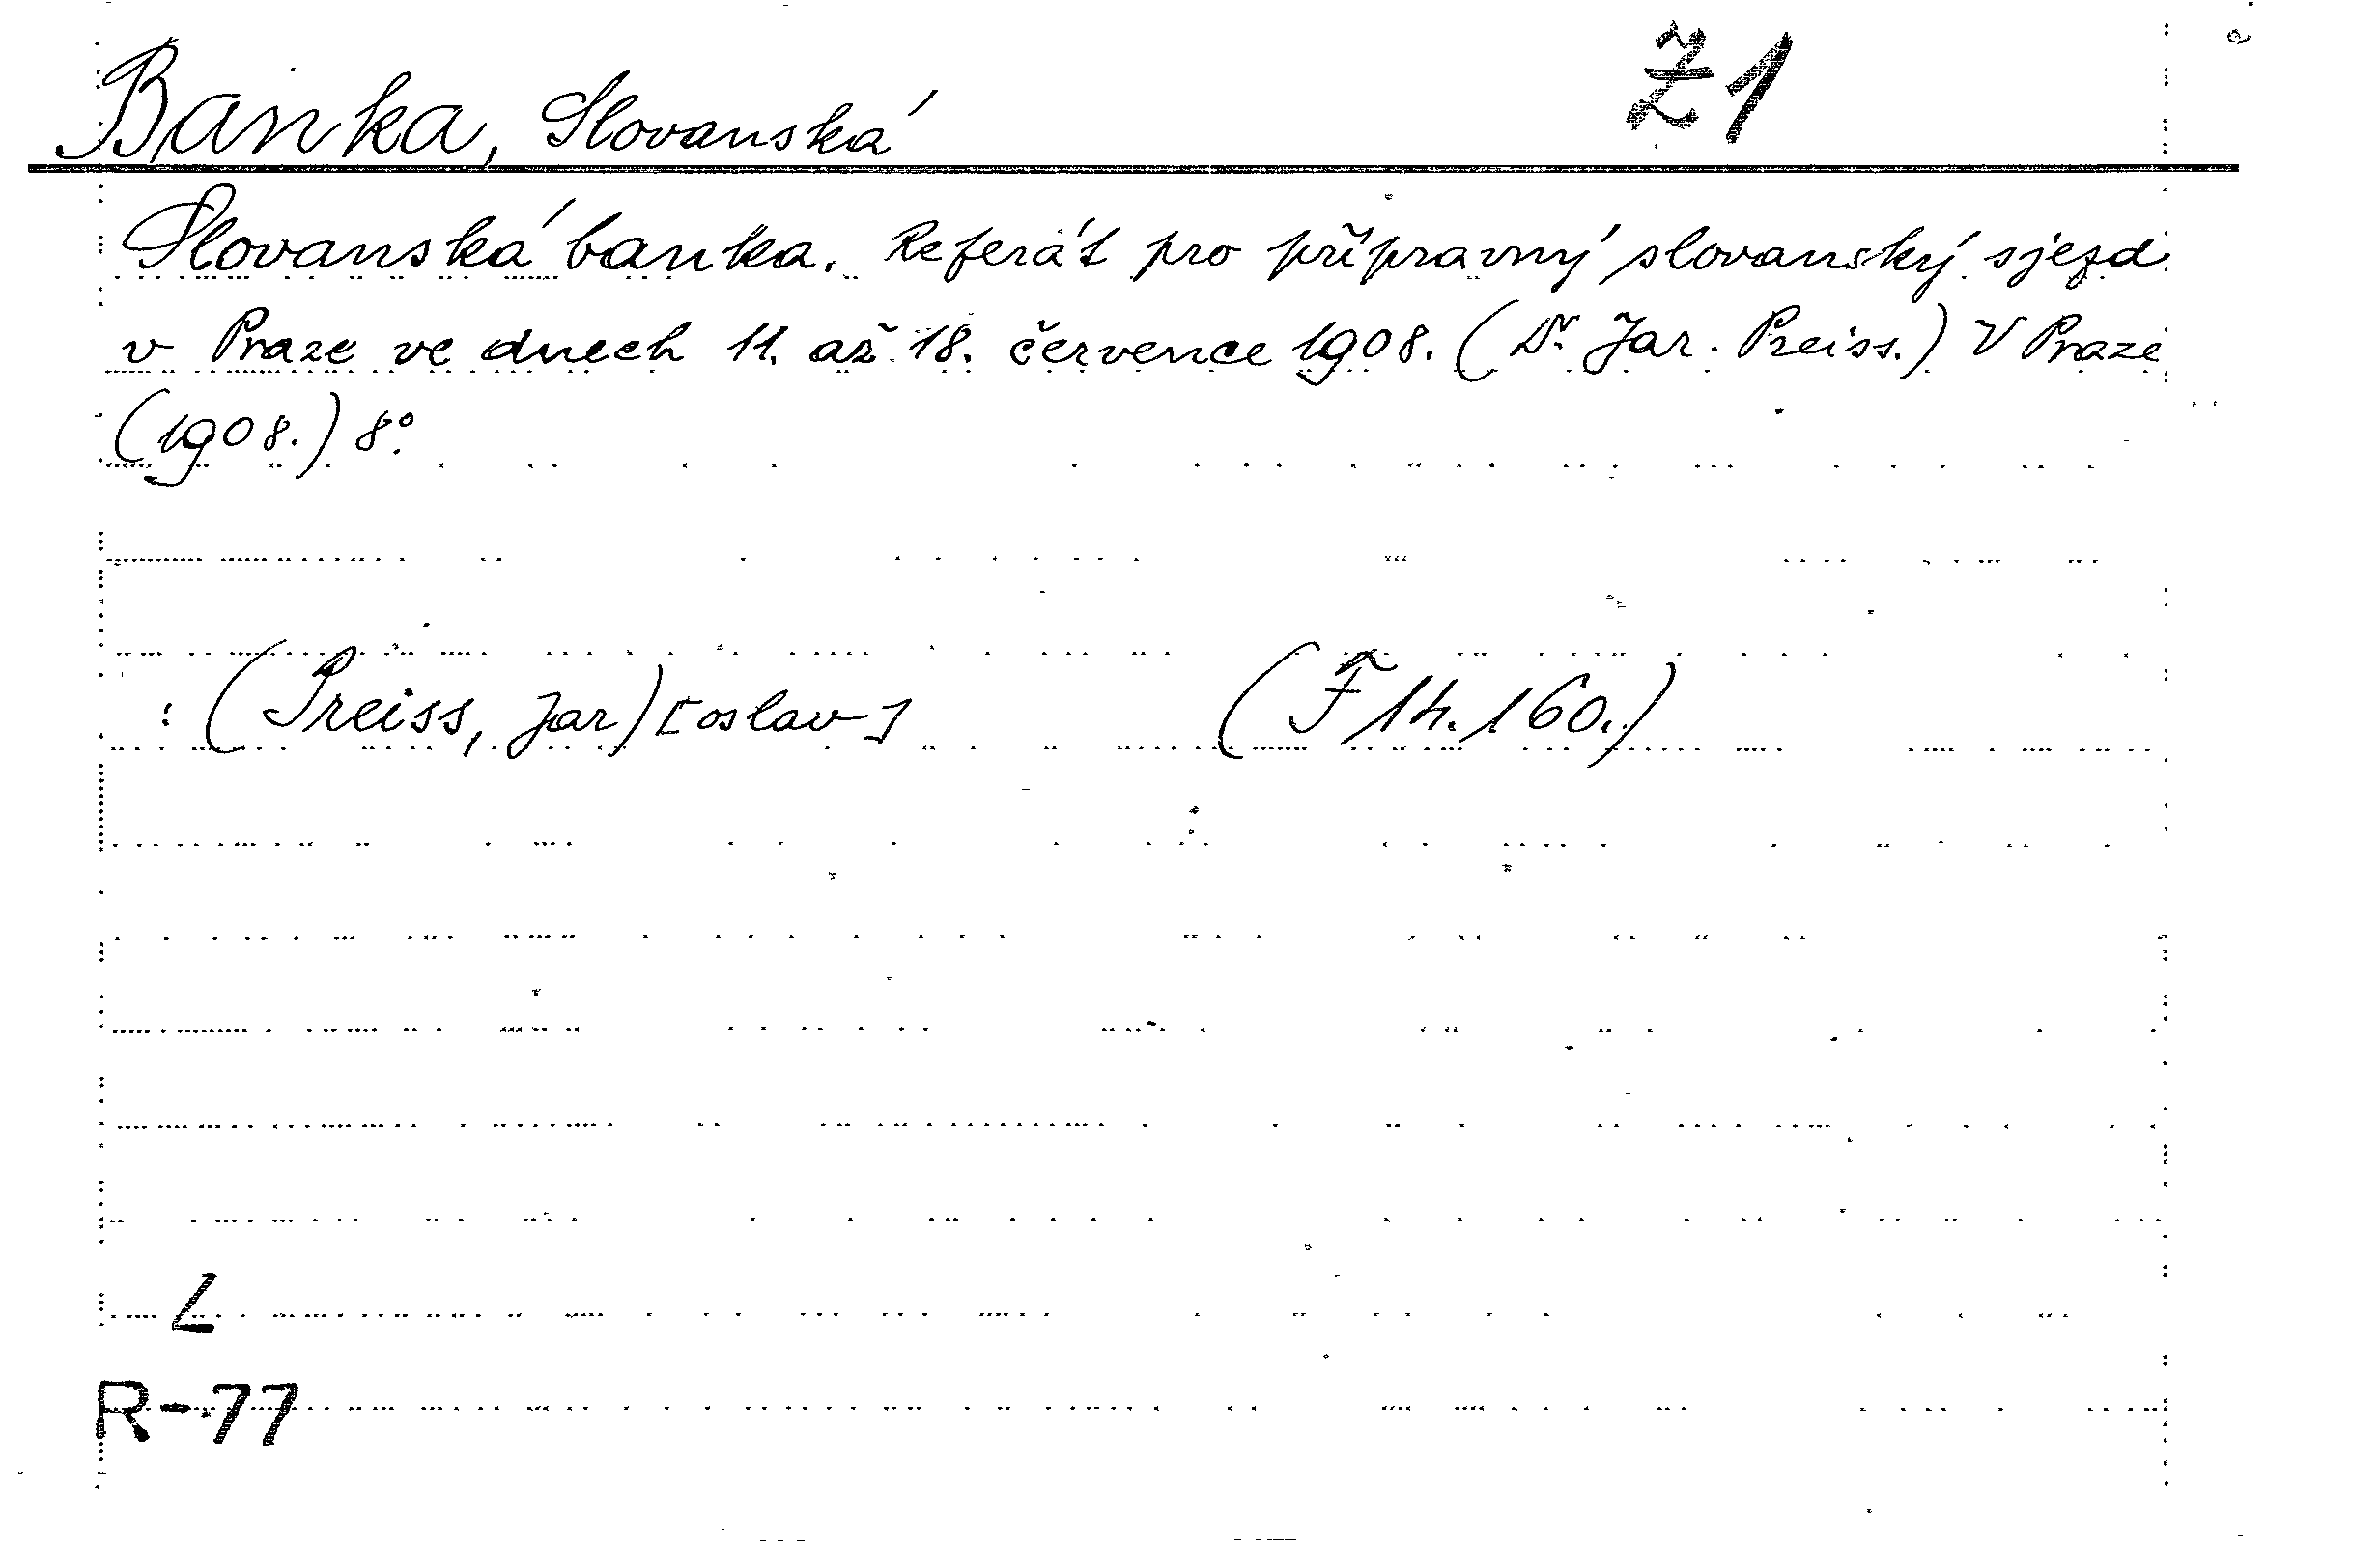 Banka, Slovanská
Ž1
Slovanská banka. Referát pro přípravný slovanský sjezd
v Praze ve dnech 11. až 18. července 1908. (Dr. Jar. Preiss.) V Praze
(1908.) 8°.
: (Preiss, Jar)[oslav] (F 1h. 160.)
L
R-77